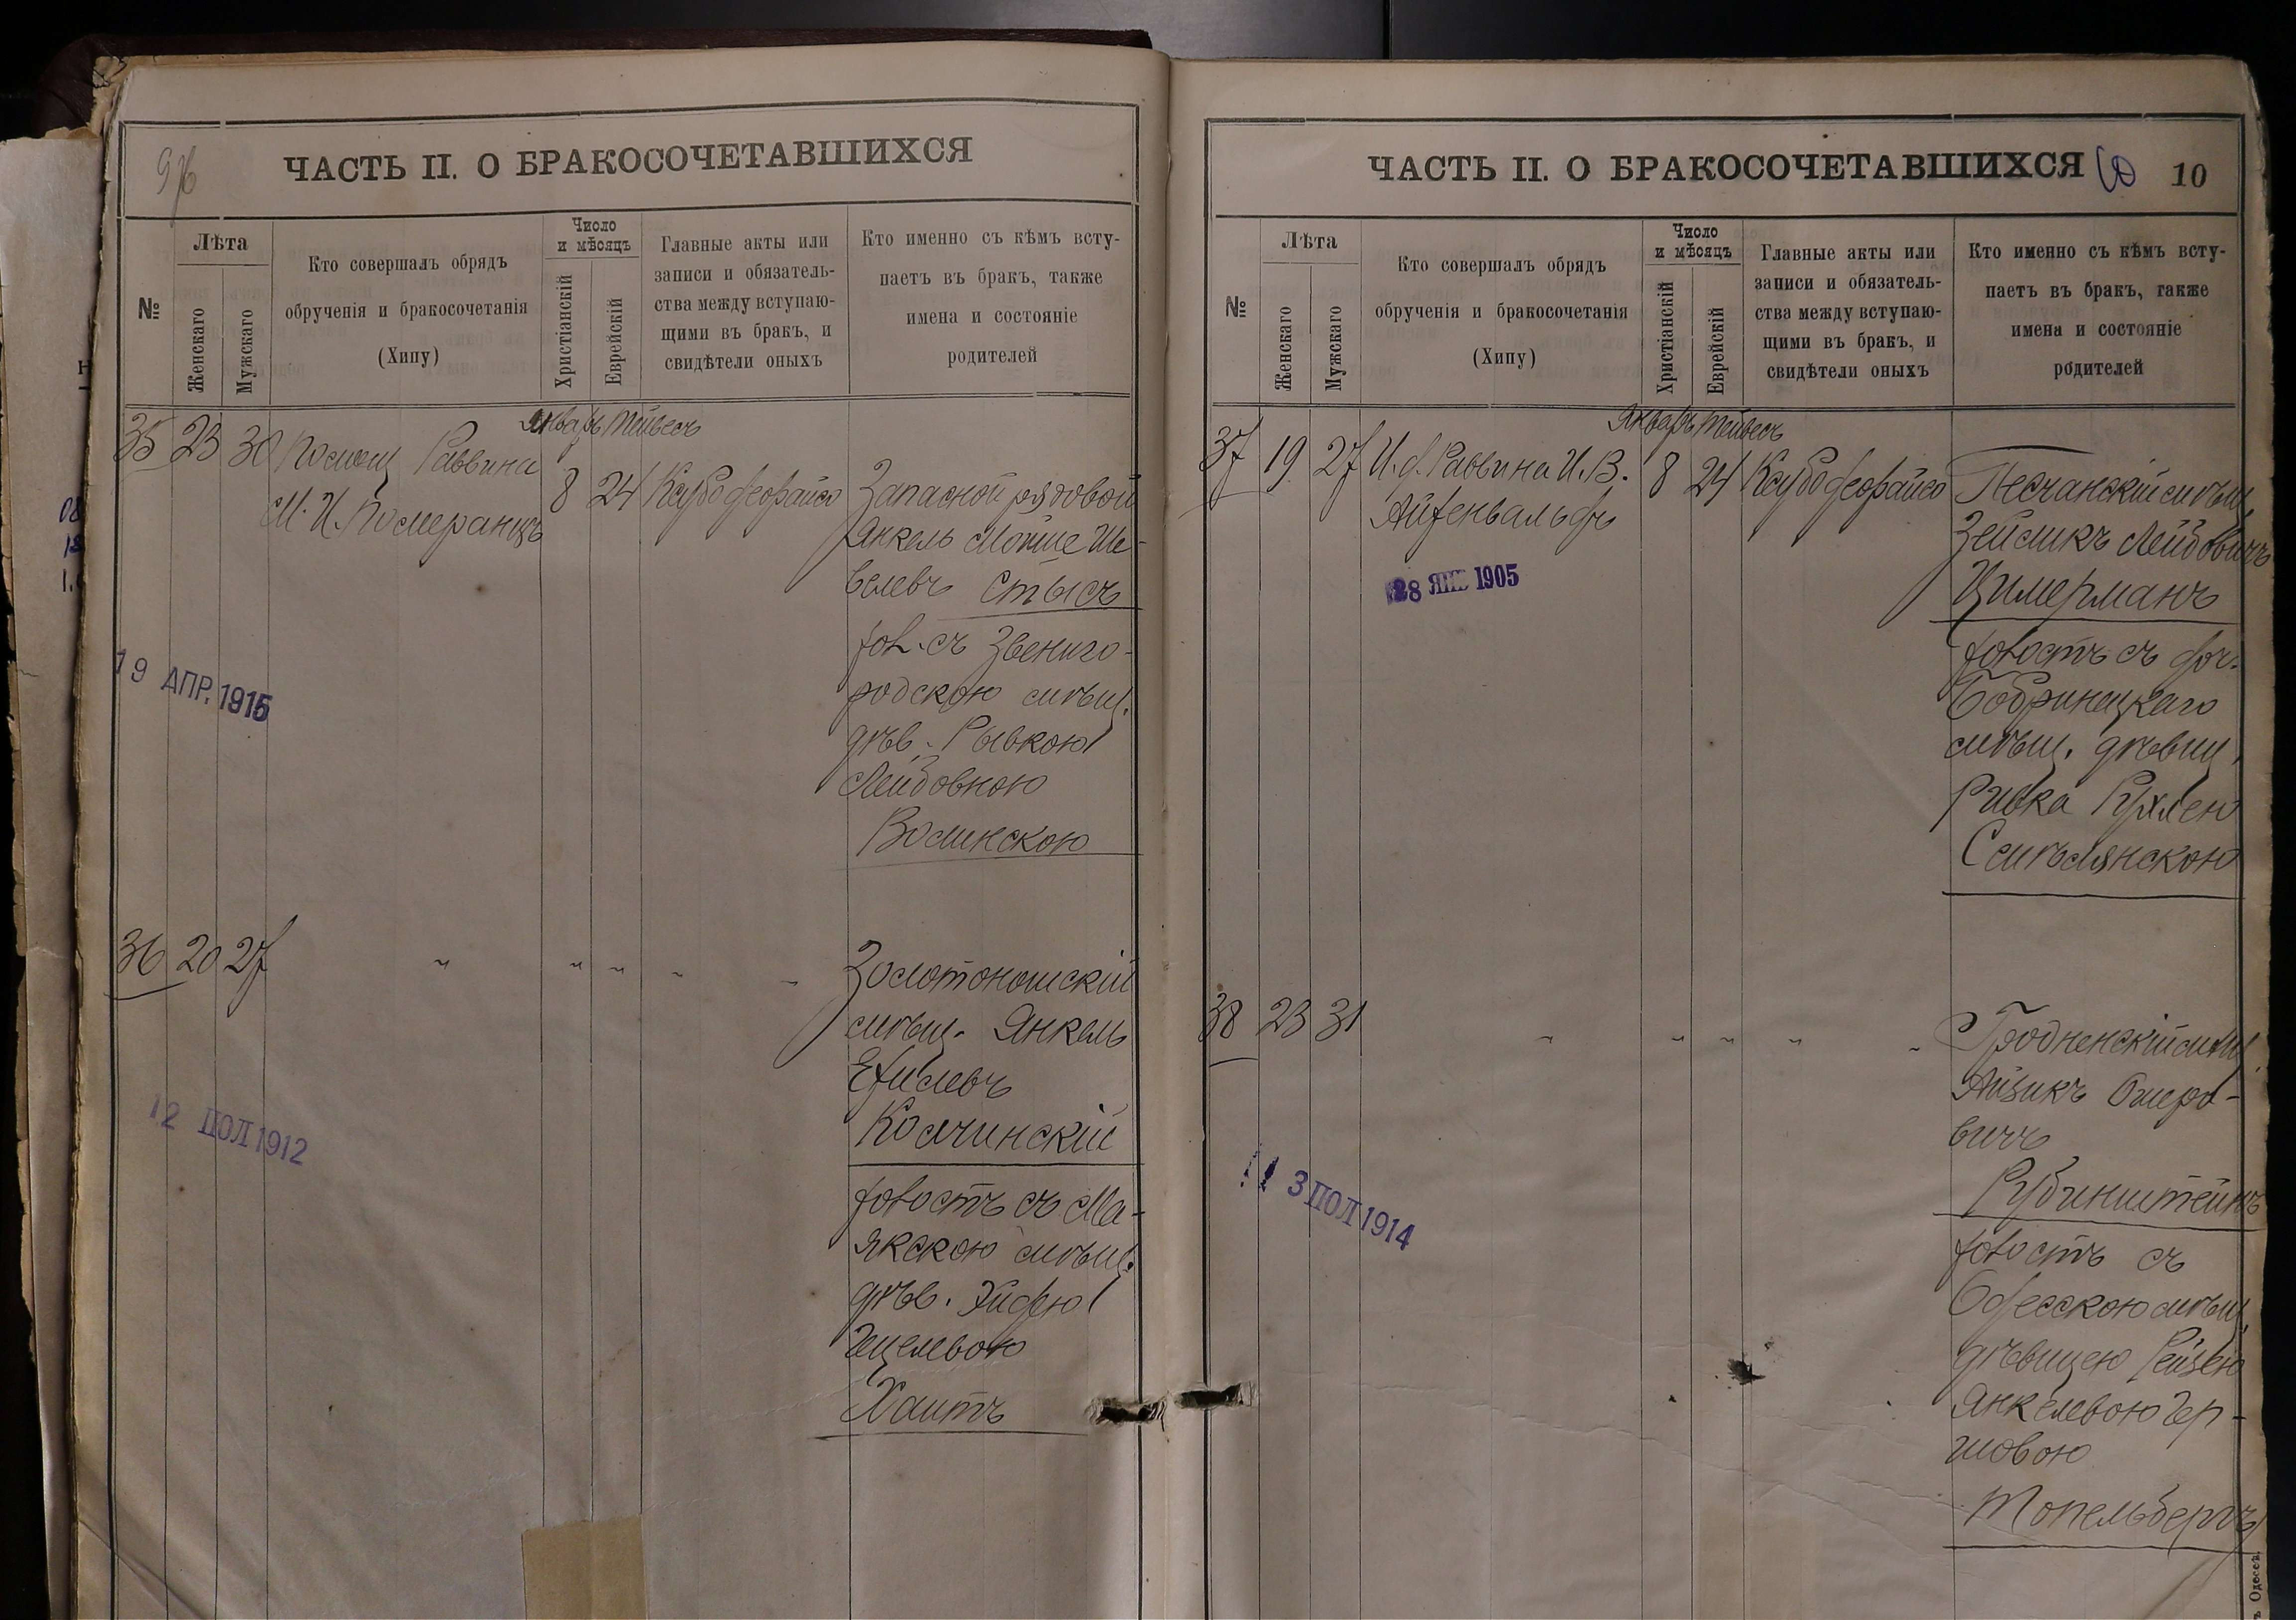 9 об
ЧАСТЬ II. О БРАКОСОЧЕТАВШИХСЯ
№
Лѣта
Женскаго
Мужскаго
Кто совершалъ обрядъ
обрученія и бракосочетанія
(Хипу)
Число
и мѣсяцъ
Христіанскій
Еврейскій
Главные акты или
записи и обязатель-
ства между вступаю-
щими въ бракъ, и
свидѣтели оныхъ
Кто именно съ кѣмъ всту-
паетъ въ бракъ, также
имена и состояніе
родителей
Январь Тейвесъ
35 23 30 Помощ Раввина
М. И. Померанцъ
8 24
Запасной рядовой
Янкель Мойше Ше-
велевъ Стысъ
хол. съ Звениго-
родскою мѣщ.
дѣв. Рывкою
Лейбовною
Волинскою
19 АПР. 1915
36 20 27 " " " " "
Золотоношскій
мѣщ. Янкель
Колчинскій
холостъ съ Ма-
якскою мѣщ.
дѣв.
Гецелевою
Хаитъ
12 ПОЛ 1912
ЧАСТЬ II. О БРАКОСОЧЕТАВШИХСЯ
10
№
Лѣта
Женскаго
Мужскаго
Кто совершалъ обрядъ
обрученія и бракосочетанія
(Хипу)
Число
и мѣсяцъ
Христіанскій
Еврейскій
Главные акты или
записи и обязатель-
ства между вступаю-
щими въ бракъ, и
свидѣтели оныхъ
Кто именно съ кѣмъ всту-
паетъ въ бракъ, также
имена и состояніе
родителей
Январь Тейвесъ
37 19 27 И. д. Раввина И. В.
Айхенвальдъ
8 24
Песчанскій мѣщ.
Зейликъ Лейбовичъ
Цимерманъ
холостъ съ доч.
Бобринецкаго
мѣщ. дѣвиц.
Ривка Рухлею
Смѣлянскою
28 ЯНВ 1905
38 23 31 " " " " "
Гродненскій мѣщ.
Айзикъ Ошеро-
вичъ
Рубинштейнъ
холостъ съ
Одесскою мѣщ.
дѣвицею Рейзею
Янкелевою Гер-
шовою
Топельбергъ
3 ПОЛ 1914
Одессѣ.